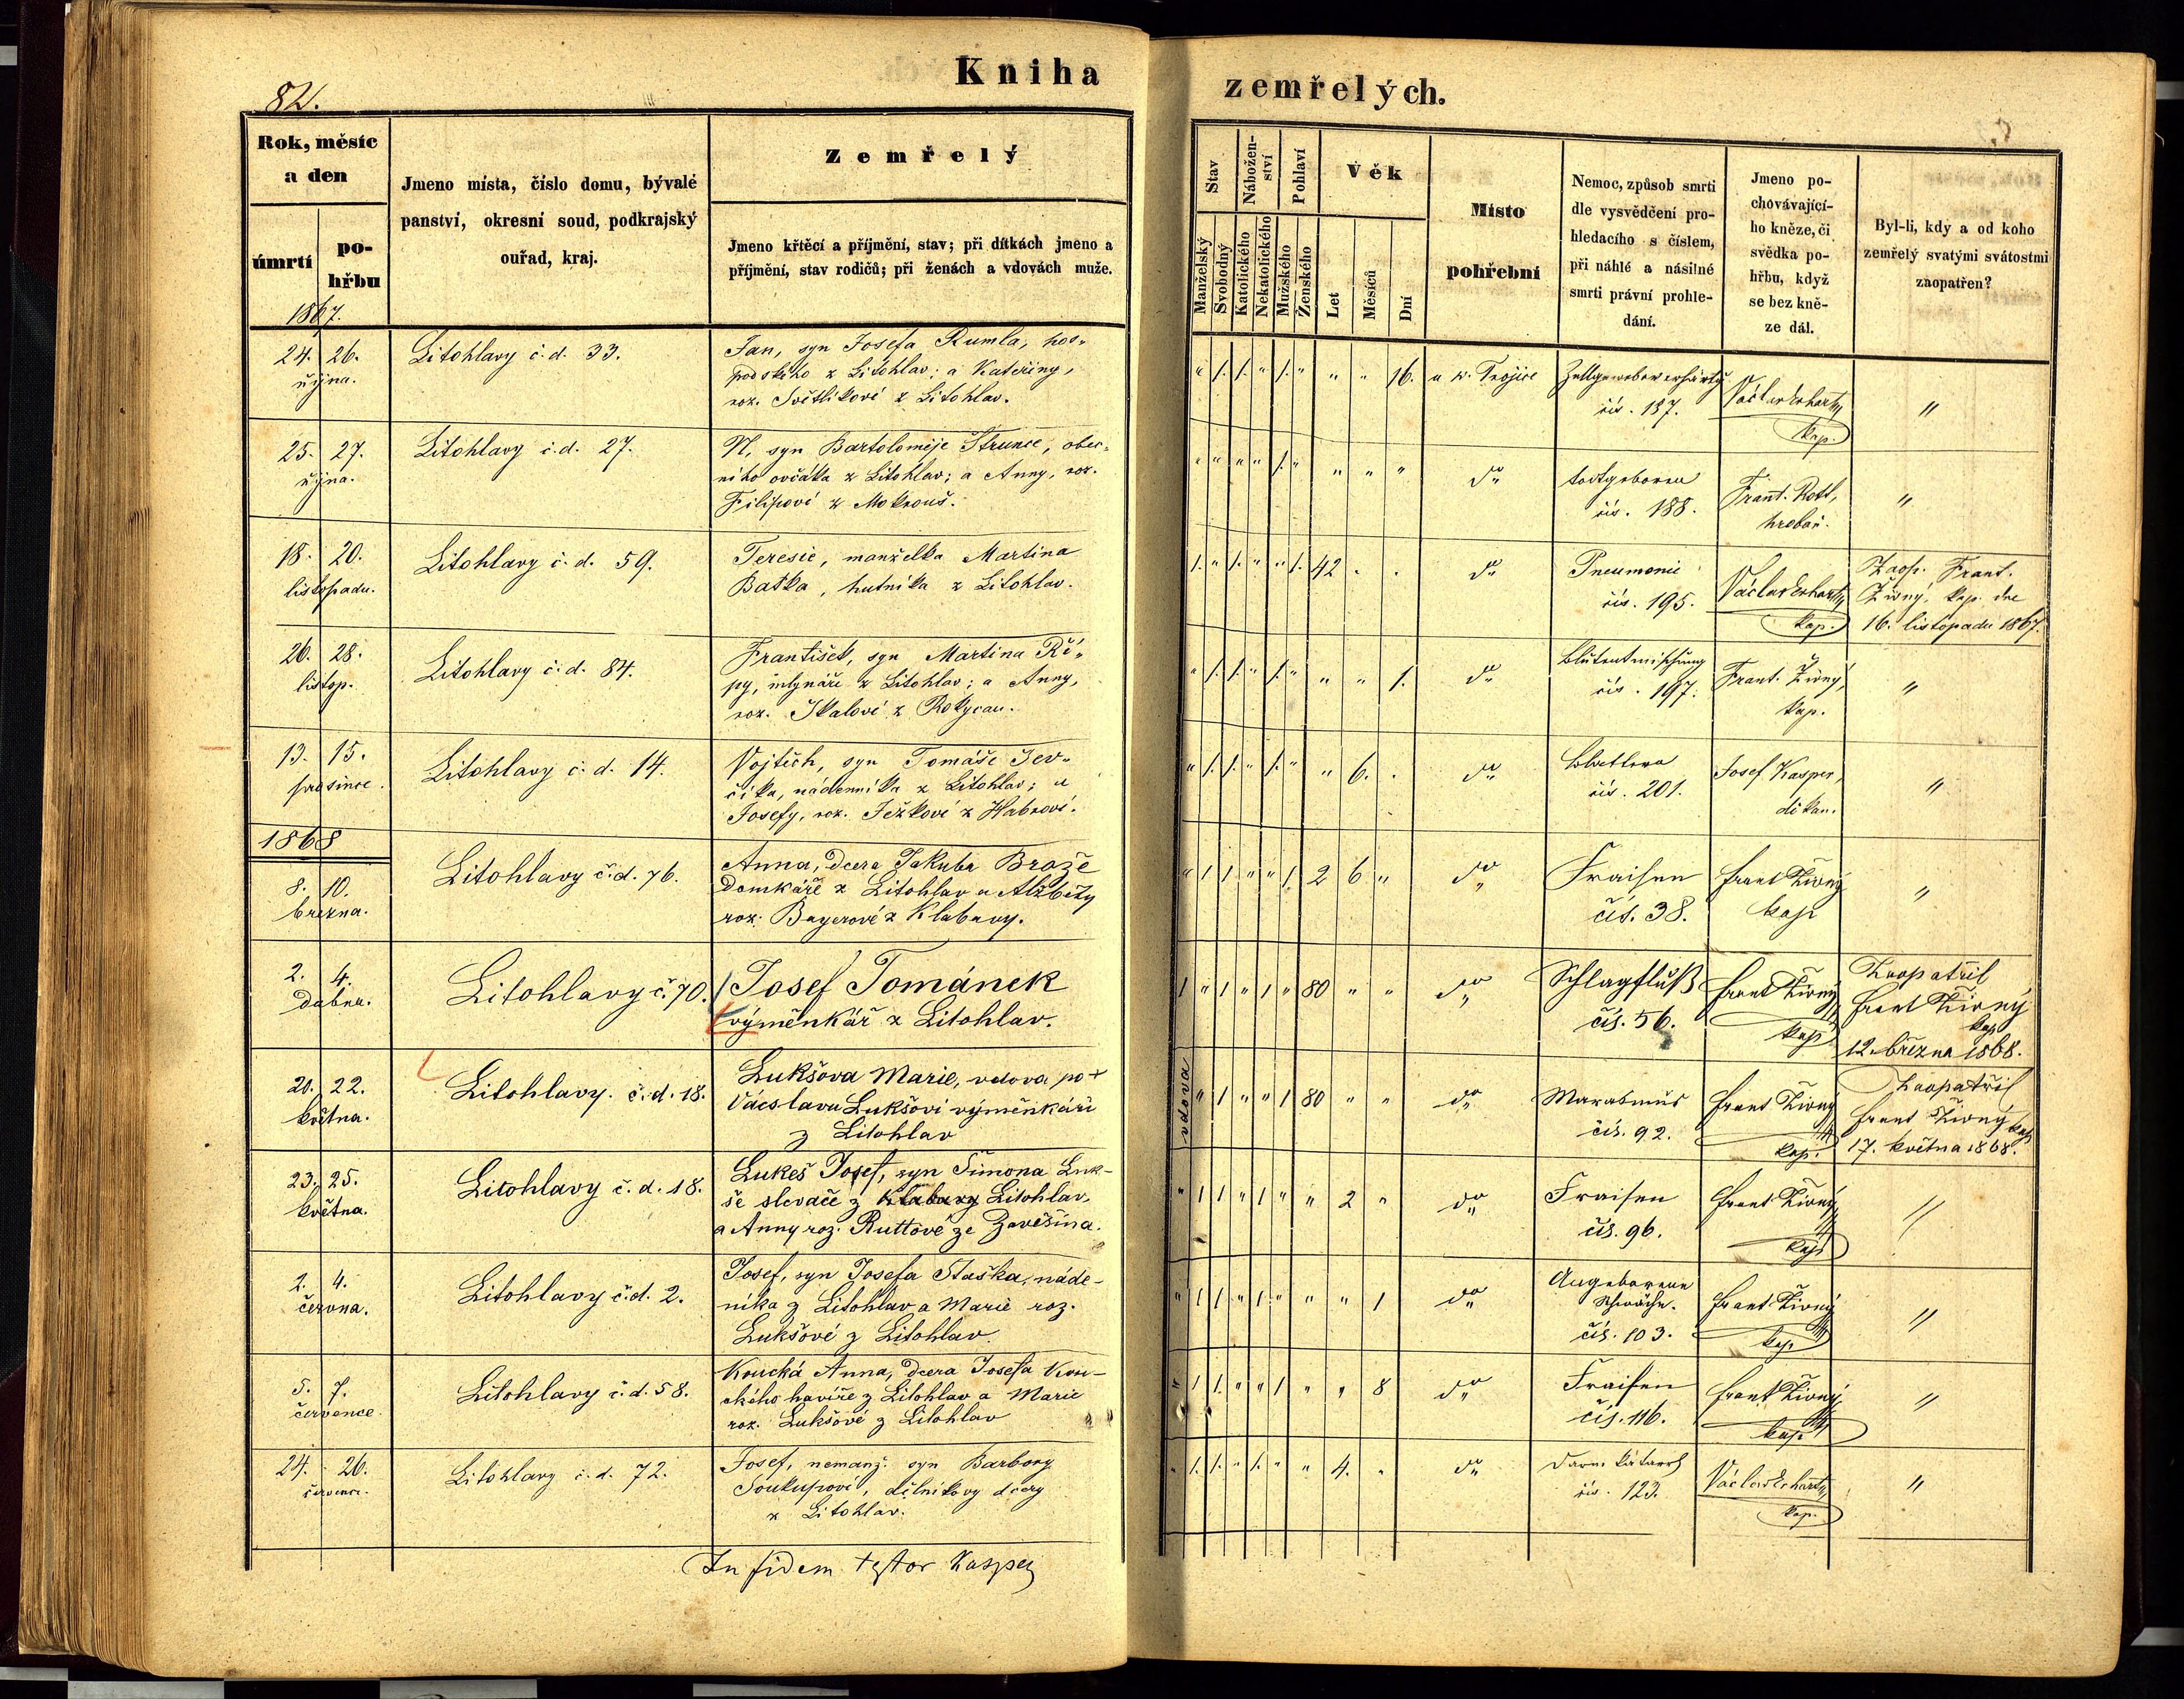 82.
Kniha zemřelých.
Rok, měsíc a den
úmrtí
pohřbu
Jmeno místa, číslo domu, bývalé
panství, okresní soud, podkrajský
ouřad, kraj.
Zemřelý
Jmeno křtěcí a příjmění, stav; při dítkách jmeno a
příjmění, stav rodičů; při ženách a vdovách muže.
Stav
Manželský
Svobodný
Nábožen-
ství
Katolického
Nekatolického
Pohlaví
Mužského
Ženského
Věk
Let
Měsíců
Dní
Místo
pohřební
Nemoc, způsob smrti
dle vysvědčení pro-
hledacího s číslem,
při náhlé a násilné
smrti právní prohle-
dání.
Jmeno po-
chovávající-
ho kněze, či
svědka po-
hřbu, když
se bez kně-
ze dál.
Byl-li, kdy a od koho
zemřelý svatými svátostmi
zaopatřen?
1867.
24. 26.
října.
Litohlavy č. d. 33.
Jan, syn Josefa Rumla, hos-
podského z Litohlav; a Kateřiny,
roz. Světlíkové z Litohlav.
" 1. 1. " 1. " " " 16.
u sv. Trojice
Zellgewebeverhärtg
čís. 187.
Václav Erhart
kap.
"
25. 27.
října.
Litohlavy č. d. 27.
N, syn Bartoloměje Strunce, obec-
ního ovčáka z Litohlav; a Anny, roz.
Filipové z Mokrouš.
" " " " 1. " " " "
do
todtgeboren
čís. 188.
Frant. Rott,
hrobař.
"
18. 20.
listopadu.
Litohlavy č. d. 59.
Teresie, manželka Martina
Baška, hutníka z Litohlav.
1. " 1. " " 1. 42 . .
do
Pneumonie
čís. 195.
Václav Erhart
kap.
Zaop. Frant.
Živný, kap. dne
16. listopadu 1867.
26. 28.
listop.
Litohlavy č. d. 84.
František, syn Martina Ří-
py, mlynáře z Litohlav; a Anny,
roz. Skalové z Rokycan.
" 1. 1. " 1. " " " 1.
do
Blutentmischung
čís. 197.
Frant. Živný,
kap.
"
13. 15.
prosince.
Litohlavy č. d. 14.
Vojtěch, syn Tomáše Jev-
číka, nádenníka z Litohlav; a
Josefy, roz. Ježkové z Habrové.
" 1. 1. " 1. " " 6. .
do
Blattern
čís. 201.
Josef Kasper,
děkan.
"
1868
8. 10.
března.
Litohlavy č. d. 76.
Anna, dcera Jakuba Brože
domkáře z Litohlav a Alžběty
roz. Bayerové z Klabavy.
" 1 1 " " 1 2 6 "
do
Fraisen
čís. 38.
Frant Živný
kap
"
2. 4.
dubna.
Litohlavy č. 70.
Josef Tománek
výměnkář z Litohlav.
1 " 1 " 1 " 80 " "
do
Schlagfluß
čís. 56.
Frant Živný
kap
Zaopatřil
Frant Živný
kap
12. března 1868.
20. 22.
května.
Litohlavy. č. d. 18.
Lukšova Marie, vdova po +
Václavu Lukšovi výměnkáři
z Litohlav
vdova
" 1 " " 1 80 " "
do
Marasmus
čís. 92.
Frant Živný
kap.
Zaopatřil
Frant Živný kap
17. května 1868.
23. 25.
května.
Litohlavy č. d. 18.
Lukeš Josef, syn Šimona Luk-
še slevače z Klabavy Litohlav,
a Anny roz. Ruttové ze Zavěšína.
" 1 1 " 1 " " 2 "
do
Fraisen
čís. 96.
Frant Živný
kap
"
2. 4.
června.
Litohlavy č. d. 2.
Josef, syn Josefa Staška, náde-
níka z Litohlav a Marie roz.
Lukšové z Litohlav.
" 1 1 " 1 " " " 1
do
Angeborene
Schwäche.
čís. 103.
Frant Živný
kap
"
5. 7.
července.
Litohlavy č. d. 58.
Koucká Anna, dcera Josefa Kou-
ckého havíře z Litohlav a Marie
roz. Lukšové z Litohlav
" 1 1. " " 1 " " 8
do
Fraisen
čís. 116.
Frant Živný
kap
"
24. 26.
července.
Litohlavy č. d. 72.
Josef, nemanž. syn Barbory
Soukupové, dělníkovy dcery
z Litohlav.
" 1. 1. " 1. " " 4. "
do
Darmkatarrh
čís. 123.
Václav Erhart
kap.
"
In fidem testor Kasper